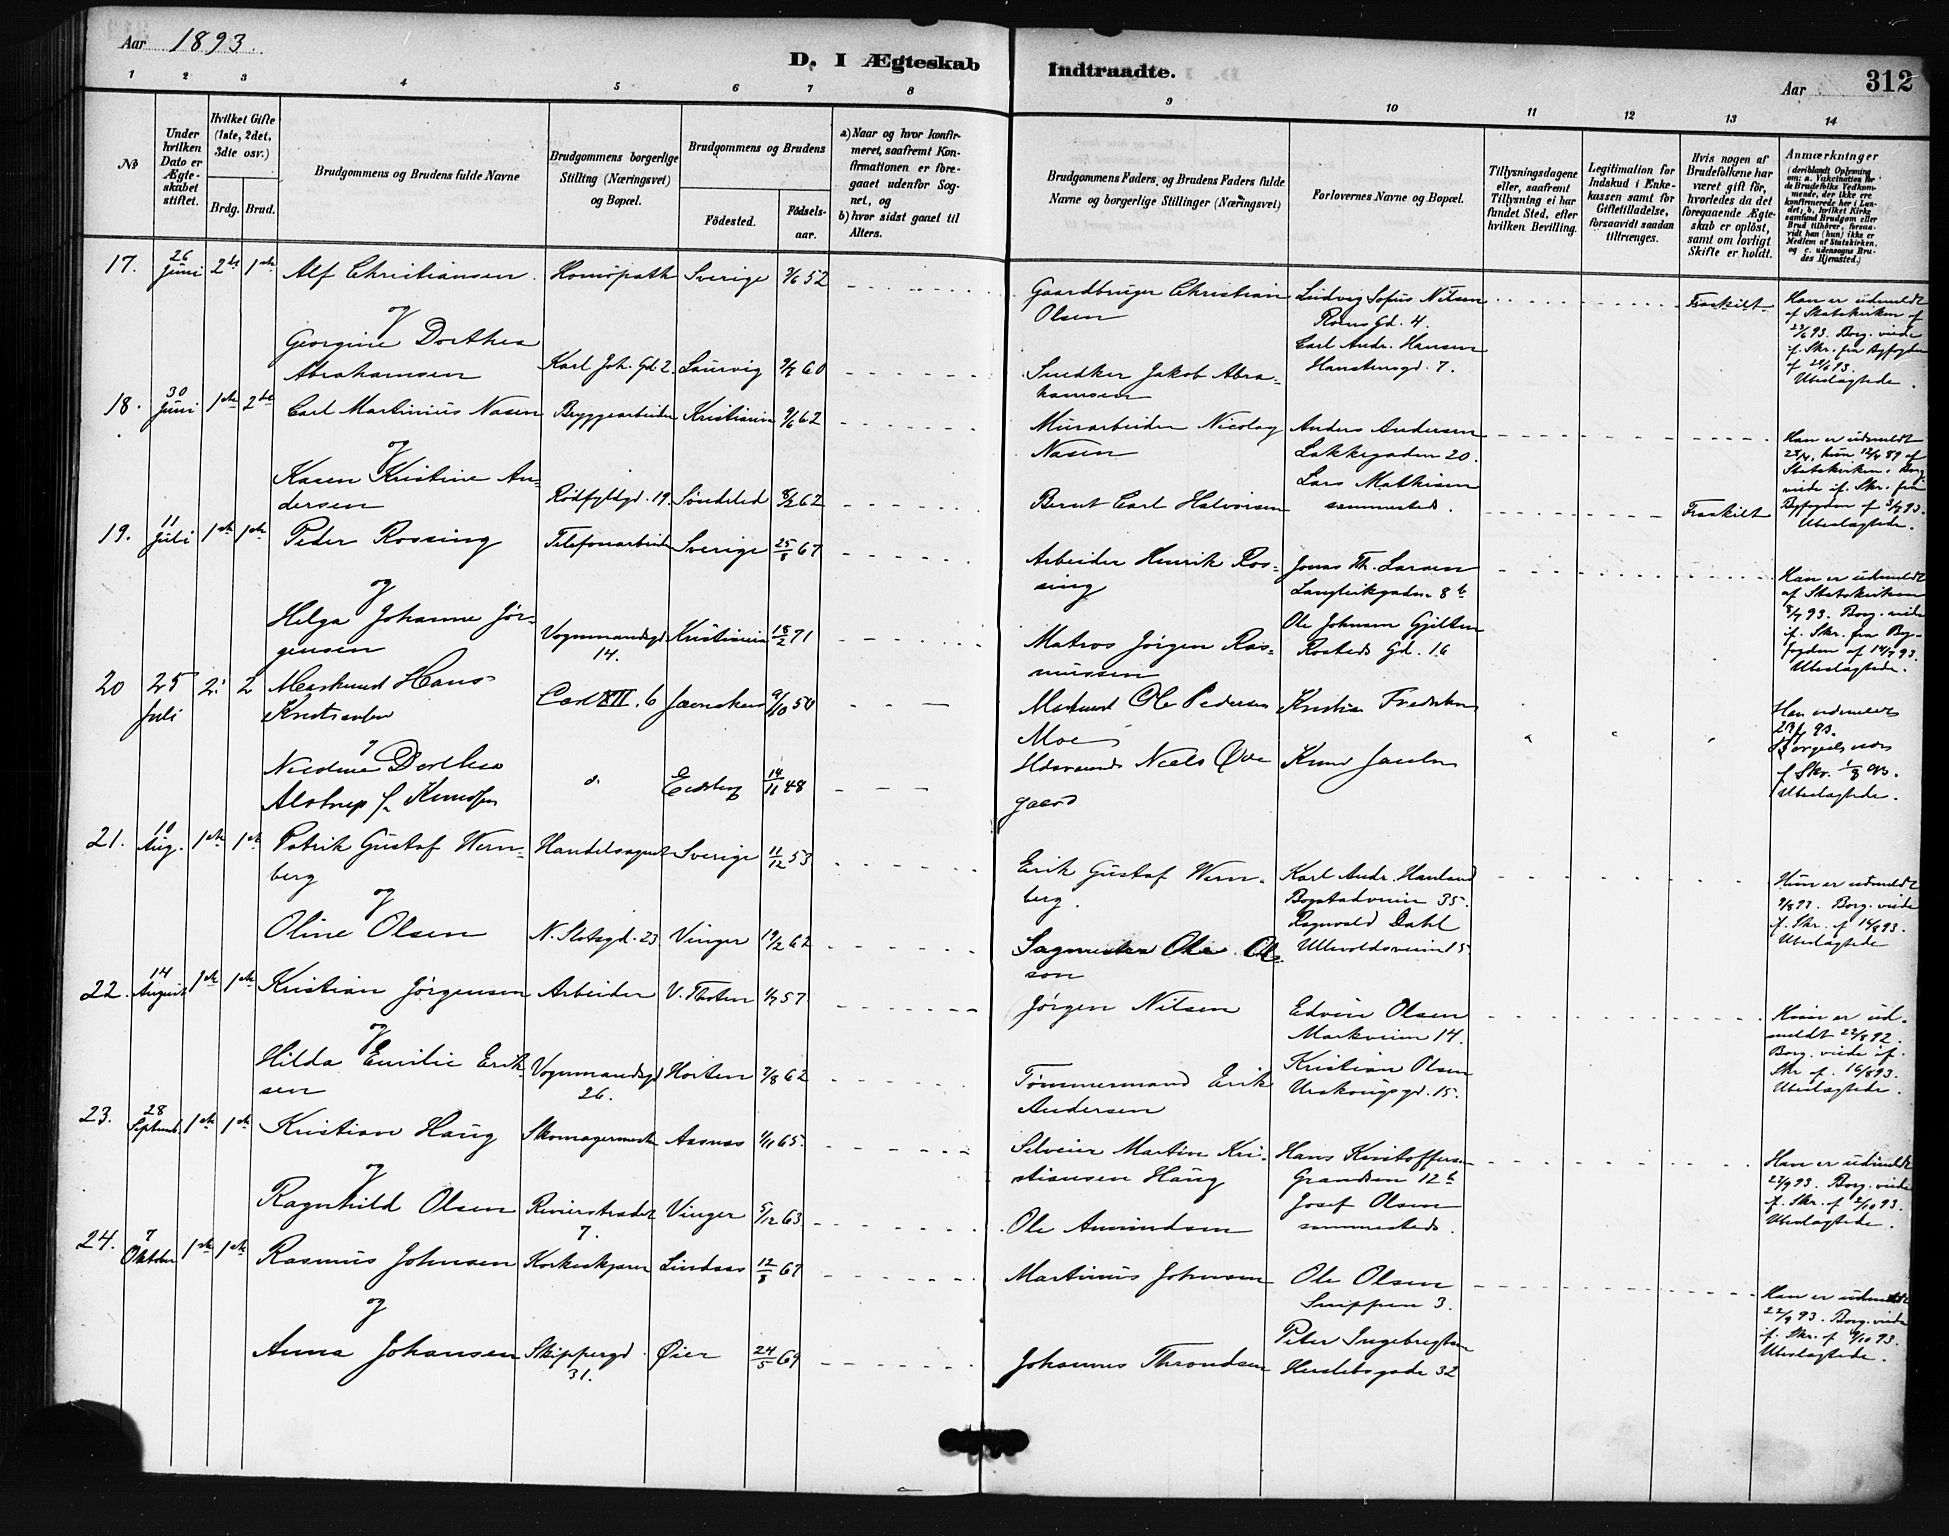 Aar 1893.
D. I Ægteskab Indtraadte.
Aar
312
1 2 3 4 5 6 7 8 9 10 11 12 13 14
No
Under hvilken Dato er Ægteskabet stiftet.
Hvilket Gifte (1ste, 2det, 3die osv.)
Brdg. Brud.
Brudgommens og Brudens fulde Navne
Brudgommens borgerlige Stilling (Næringsvei) og Bopæl.
Brudgommens og Brudens
Fødested. Fødselsaar.
a) Naar og hvor konfirmeret, saafremt Konfirmationen er foregaaet udenfor Sognet, og
b) hvor sidst gaaet til Alters.
Brudgommens Faders, og Brudens Faders fulde Navne og borgerlige Stillinger (Næringsvei)
Forlovernes Navne og Bopæl.
Tillysningsdagene eller, saafremt Tillysning ei har fundet Sted, efter hvilken Bevilling.
Legitimation for Indskud i Enkekassen samt for Giftetilladelse, forsaavidt saadan tiltrænges.
Hvis nogen af Brudefolkene har været gift før, hvorledes da det foregaaende Ægteskab er opløst, samt om lovligt Skifte er holdt.
Anmærkninger (deriblandt Oplysning om: a. Vakcination for de Brudefolks Vedkommende, der ikke ere konfirmerede her i Landet; b. hvilket Kirkesamfund Brudgom eller Brud tilhører, forsaavidt han (hun) ikke er Medlem af Statskirken, og c. udensogns Brudes Hjemsted.)
17. 26 Juni 2de 1ste Alf Christiansen Homöpath Sverige 52
Gaardbruger Christian Olsen
Ludvig Sofus Nilsen
Gd. 4.
Fraskilt
Han er udmeldt af Statskirken 93. Borg. viede if. Skr. fra Byfogden
Ubeslægtede.
og
Georgine Dorthea Abrahamsen Karl Joh. Gd. 2. Laurvig 60
Snedker Jakob Abrahamsen
Carl Andr. Hansen
18. 30 Juni 1ste 2de Carl Martinius Nasen Bryggearbeider Kristiania 62
Murarbeider Nicolay Nasen
Anders Andersen
Lakkegaden 20.
Han er udmeldt
Statskirken. Borg. viede if. Skr. fra Byfogden
Ubeslægtede.
og
Karen Kristine Andersen Rödfyldgd. 19. Söndeled 62
Bernt Carl Halvorsen
Lars Mathisen
sammesteds.
Fraskilt
19. 11 Juli 1ste 1ste Peder Rossing Telefonarbeider Sverige 25/8 67
Arbeider Henrik Rossing
Jonas Th. Larsen
Langleikgaden 8 b
Han er udmeldt af Statskirken 8/7 93. Borg. viede if. Skr. fra Byfogden af 14/7 93.
Ubeslægtede.
og
Helga Johanne Jörgensen Vognmandsgd. 14. Kristiania 18/2 71
Matros Jörgen Rasmussen
Ole Johnsen
Rosteds Gd. 16
20 25 Juli 2 2 Hans Carl XII. 6 50
Ole Pedersen Moe
Han udmeldt
Ubeslægtede.
Dorthea Alstrup f. Knudsen 14/11 48
Niels
21. 10 Aug. 1ste 1ste Patrik Gustaf Wernberg Handelsagent Sverige 11/12 53
Erik Gustaf Wernberg.
Karl Andr.
Bogstadveien 35.
Hun er udmeldt
Borg. viede if. Skr. af 14/8 93.
Ubeslægtede
og
Oline Olsen N. Slotsgd. 23. Vinger 19/2 62
Sagmester Ole Olsson
Ragnvald Dahl
Ullevoldsveien 15.
22. 14 August 1ste 1ste Kristian Jörgensen Arbeider V. Thoten 57
Jörgen Nilsen
Edvin Olsen
Markveien 14.
Hun er udmeldt 22/8 92.
Borg. viede if. Skr. af. 16/8 93.
Ubeslægtede.
og
Hilda Emilie Eriksen Vognmandsgd. 26. Horten 62
Tömmermand Erik Andersen
Kristian Olsen
Urskougsgd. 15.
23. 28 Septemb. 1ste 1ste Kristian Haug Skomagermester Aasnas 1/11 65.
Martin Kristiansen Haug
Hans Kristoffersen
Grændsen 12 b
Han er udmeldt
93. Borg. viede if. Skr. af 2/10 93.
Ubeslægtede.
og
Ragnhild Olsen Revierstrædet 7. Vinger 5/12 63
Ole Amundsen
Josef Olsen
sammesteds.
24. 7 Oktober 1ste 1ste Rasmus Johnsen Korkeskjærer Lindaas 12/8 67
Martinus Johnsen
Ole Olsen
Snippen 3.
Han er udmeldt 22/9 93. Borg. viede if. Skr. af 9/10 93.
Ubeslægtede.
og
Anna Johansen Skippergd. 31. Öier 24/5 69
Johannes Throndsen
Peter Ingebregtsen
Herslebsgade 32